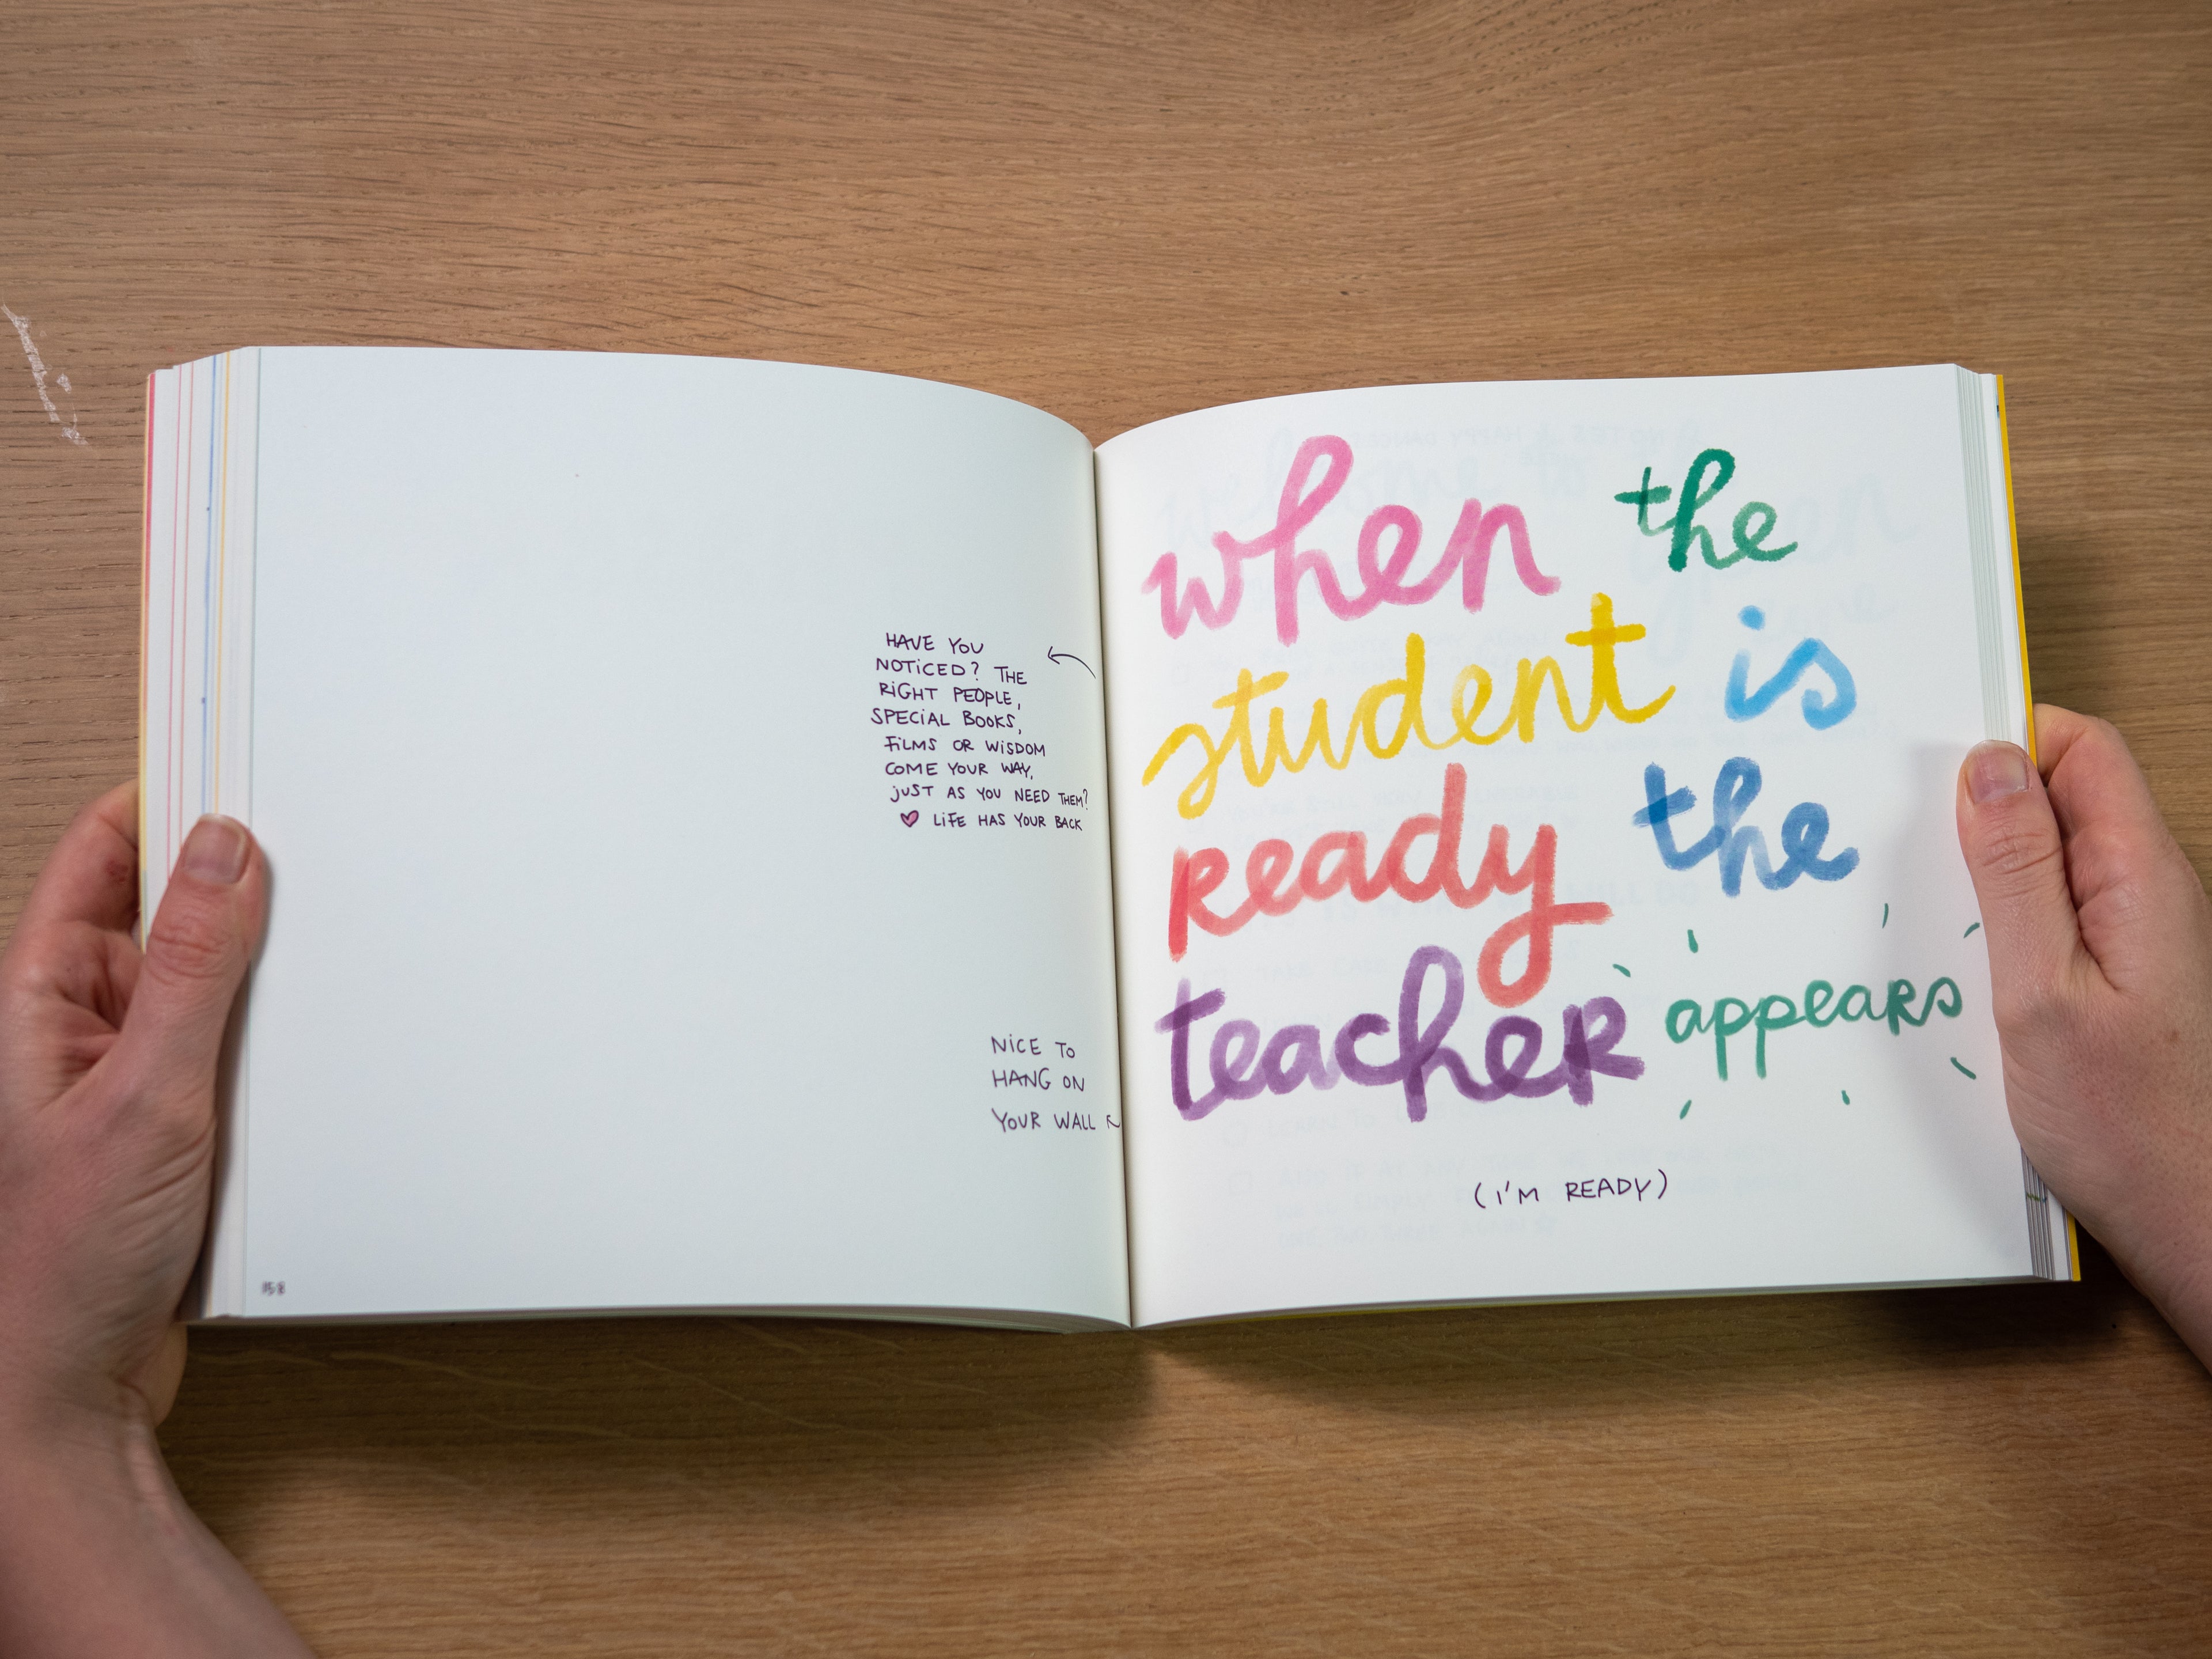 HAVE YOU
NOTICED? THE
RIGHT PEOPLE,
SPECIAL BOOKS,
FILMS OR WISDOM
COME YOUR WAY,
JUST AS YOU NEED THEM?
LIFE HAS YOUR BACK
NICE TO
HANG ON
YOUR WALL
158
when the
student is
ready the
teacher appears
(I'M READY)